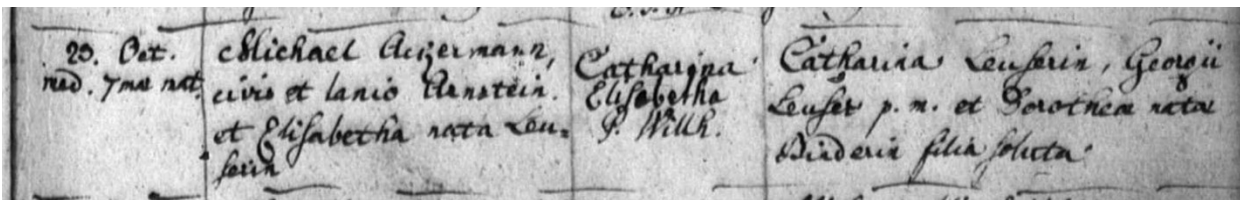 23. Oct.
med. 7mae nat.
Michael Ackermann,
civis et lanio Arnstein.
et Elisabetha nata Leu=
serin
Catharina
Elisabetha
P. Willh.
Catharina Leuserin, Georgii
Leuser p. m. et Dorotheae nata
Binderin filia soluta